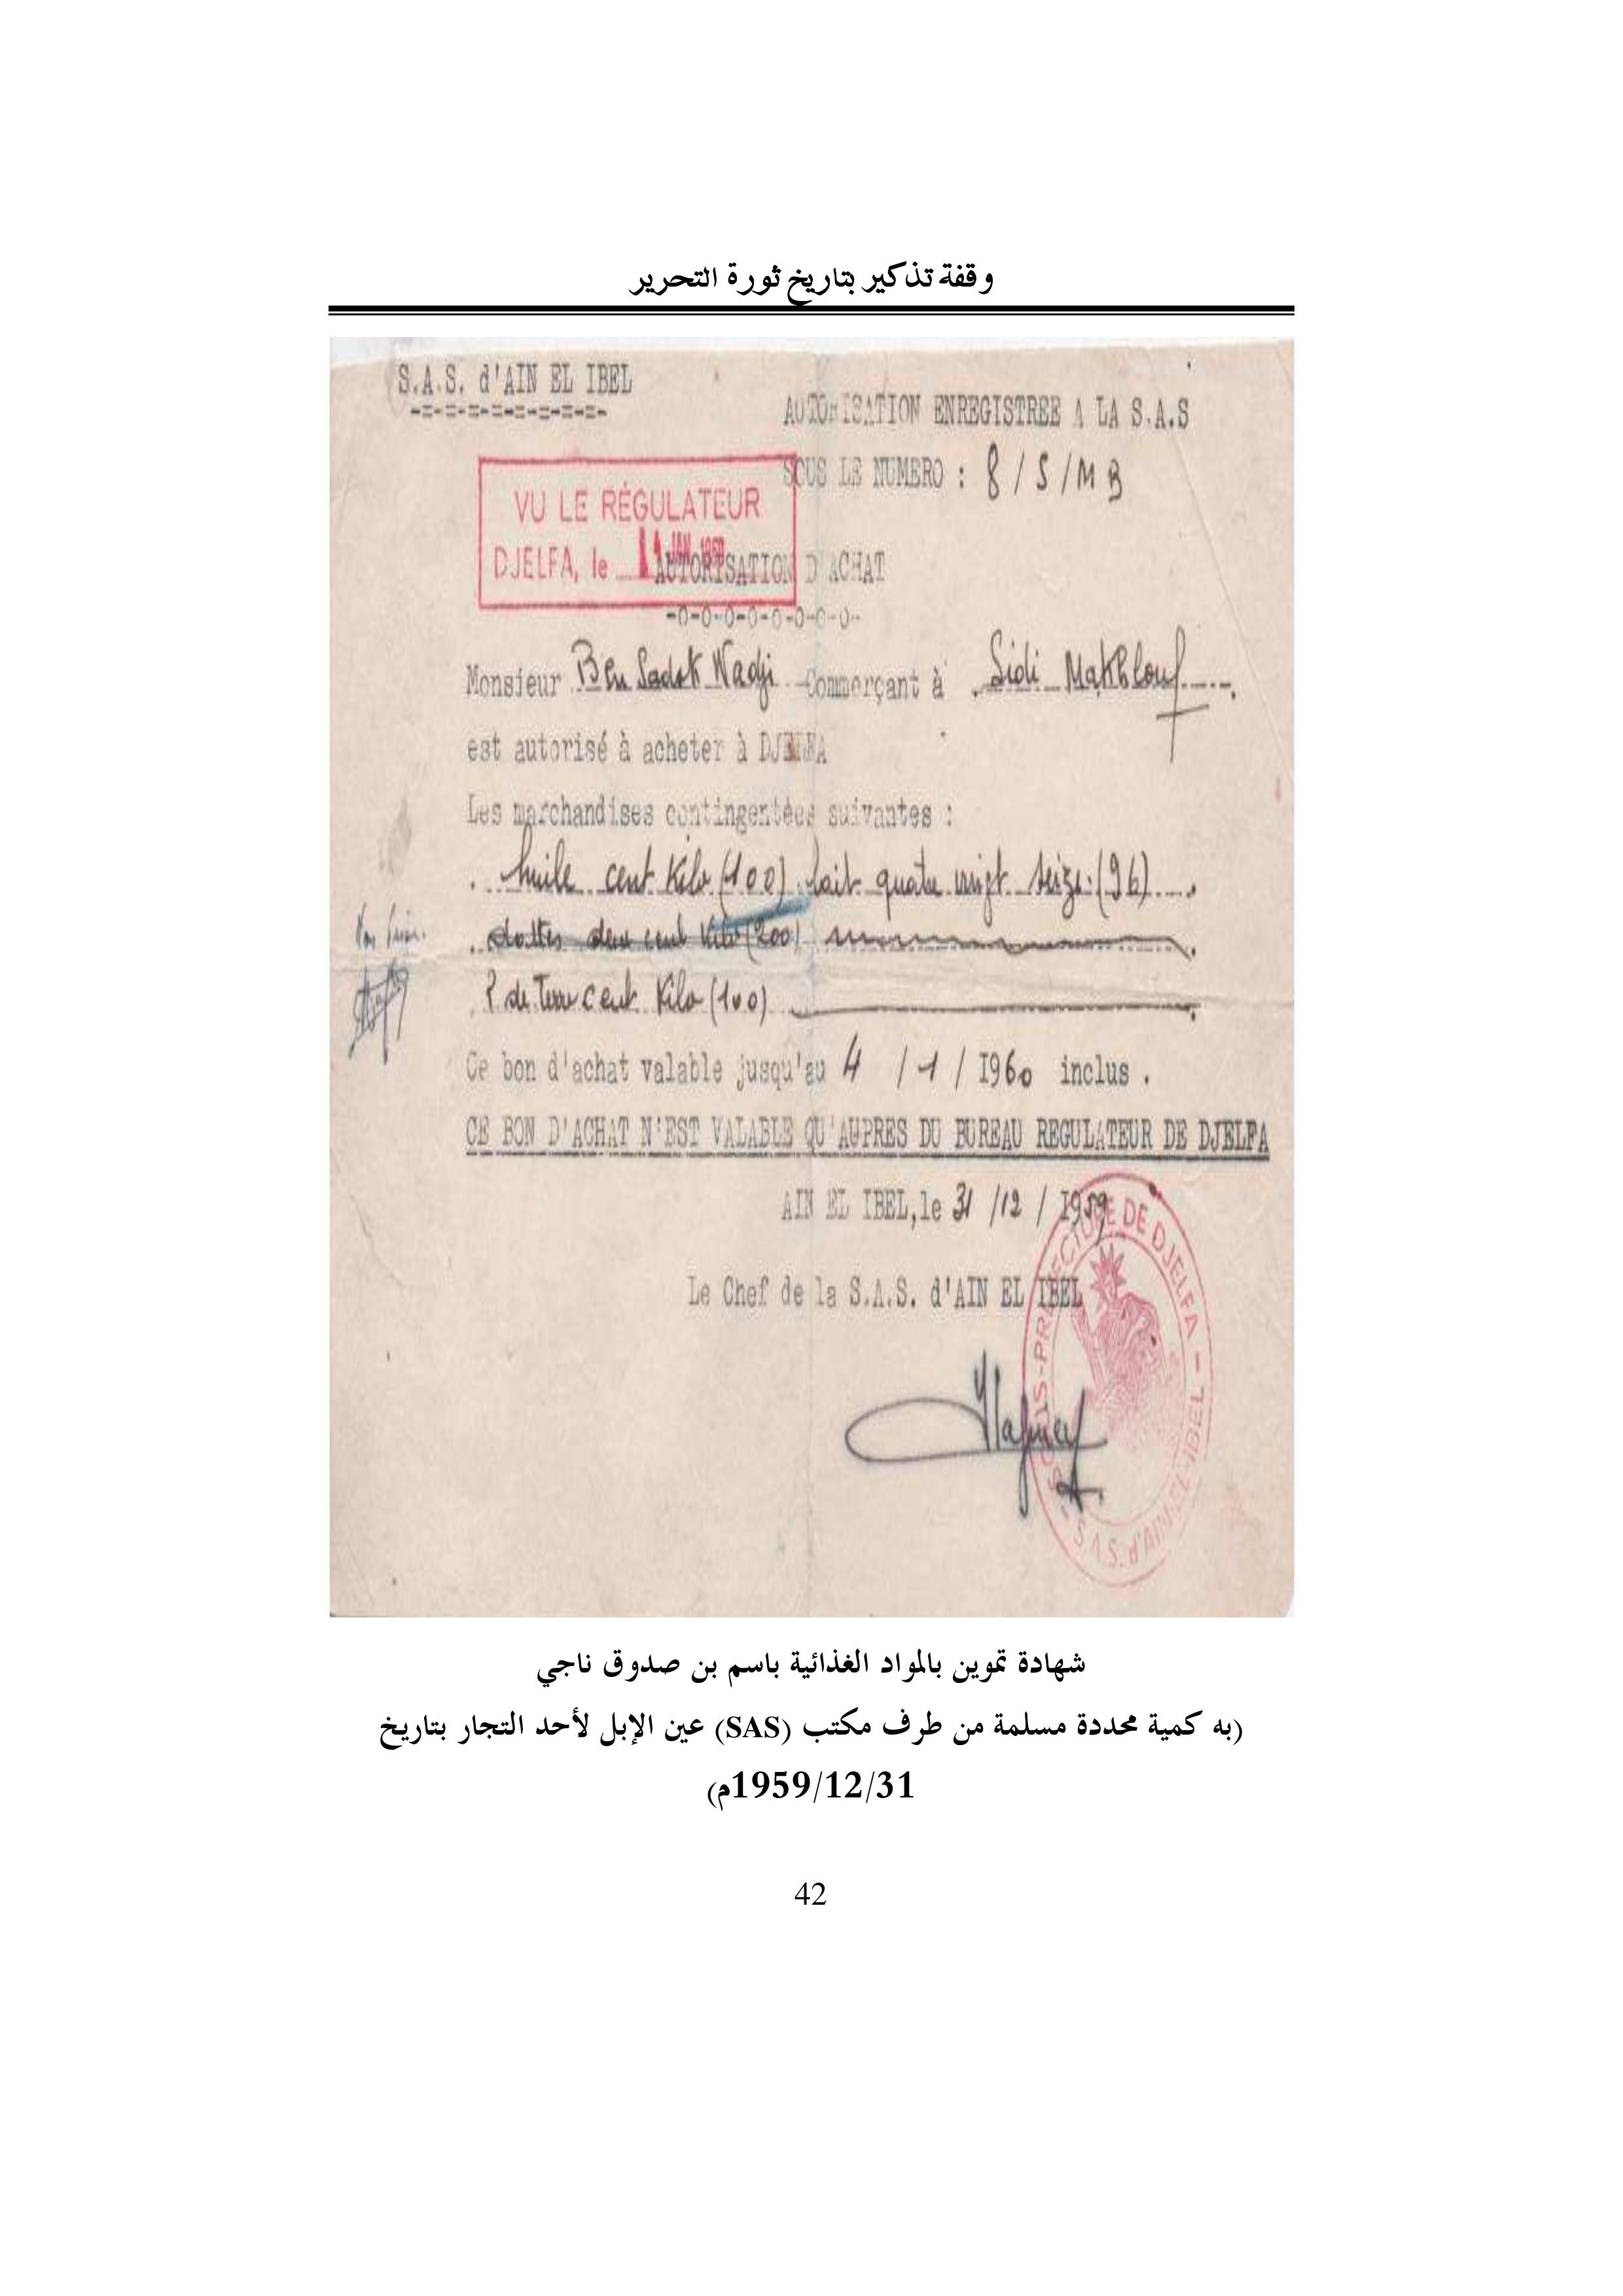 وقفة تذكير بتاريخ ثورة التحرير
S.A.S. d'AIN EL IBEL
-=-=-=-=-=-=-=-=-
AUTORISATION ENREGISTREE A LA S.A.S
SOUS LE NUMERO : 8 / S / M B
VU LE RÉGULATEUR
DJELFA, le JAN
AUTORISATION D'ACHAT
-0-0-0-0-0-0-0-0-
Monsieur Ben Sadok Nadji Commerçant à Sidi Makhlouf
est autorisé à acheter à DJELFA
Les marchandises contingentées suivantes :
huile cent Kilo (100) lait quatre vingt seize (96)
dattes deux cent Kilo (200)
P de Terre cent Kilo (100)
Ce bon d'achat valable jusqu'au 4 / 1 / 1960 inclus .
CE BON D'ACHAT N'EST VALABLE QU'AUPRES DU BUREAU REGULATEUR DE DJELFA
AIN EL IBEL, le 31 /12 / 1959
Le Chef de la S.A.S. d'AIN EL IBEL
SOUS-PREFECTURE DE DJELFA -
S.A.S. d'AIN-EL-IBEL -
شهادة تموين بالمواد الغذائية باسم بن صدوق ناجي
(به كمية محددة مسلمة من طرف مكتب (SAS) عين الإبل لأحد التجار بتاريخ
1959/12/31م)
42